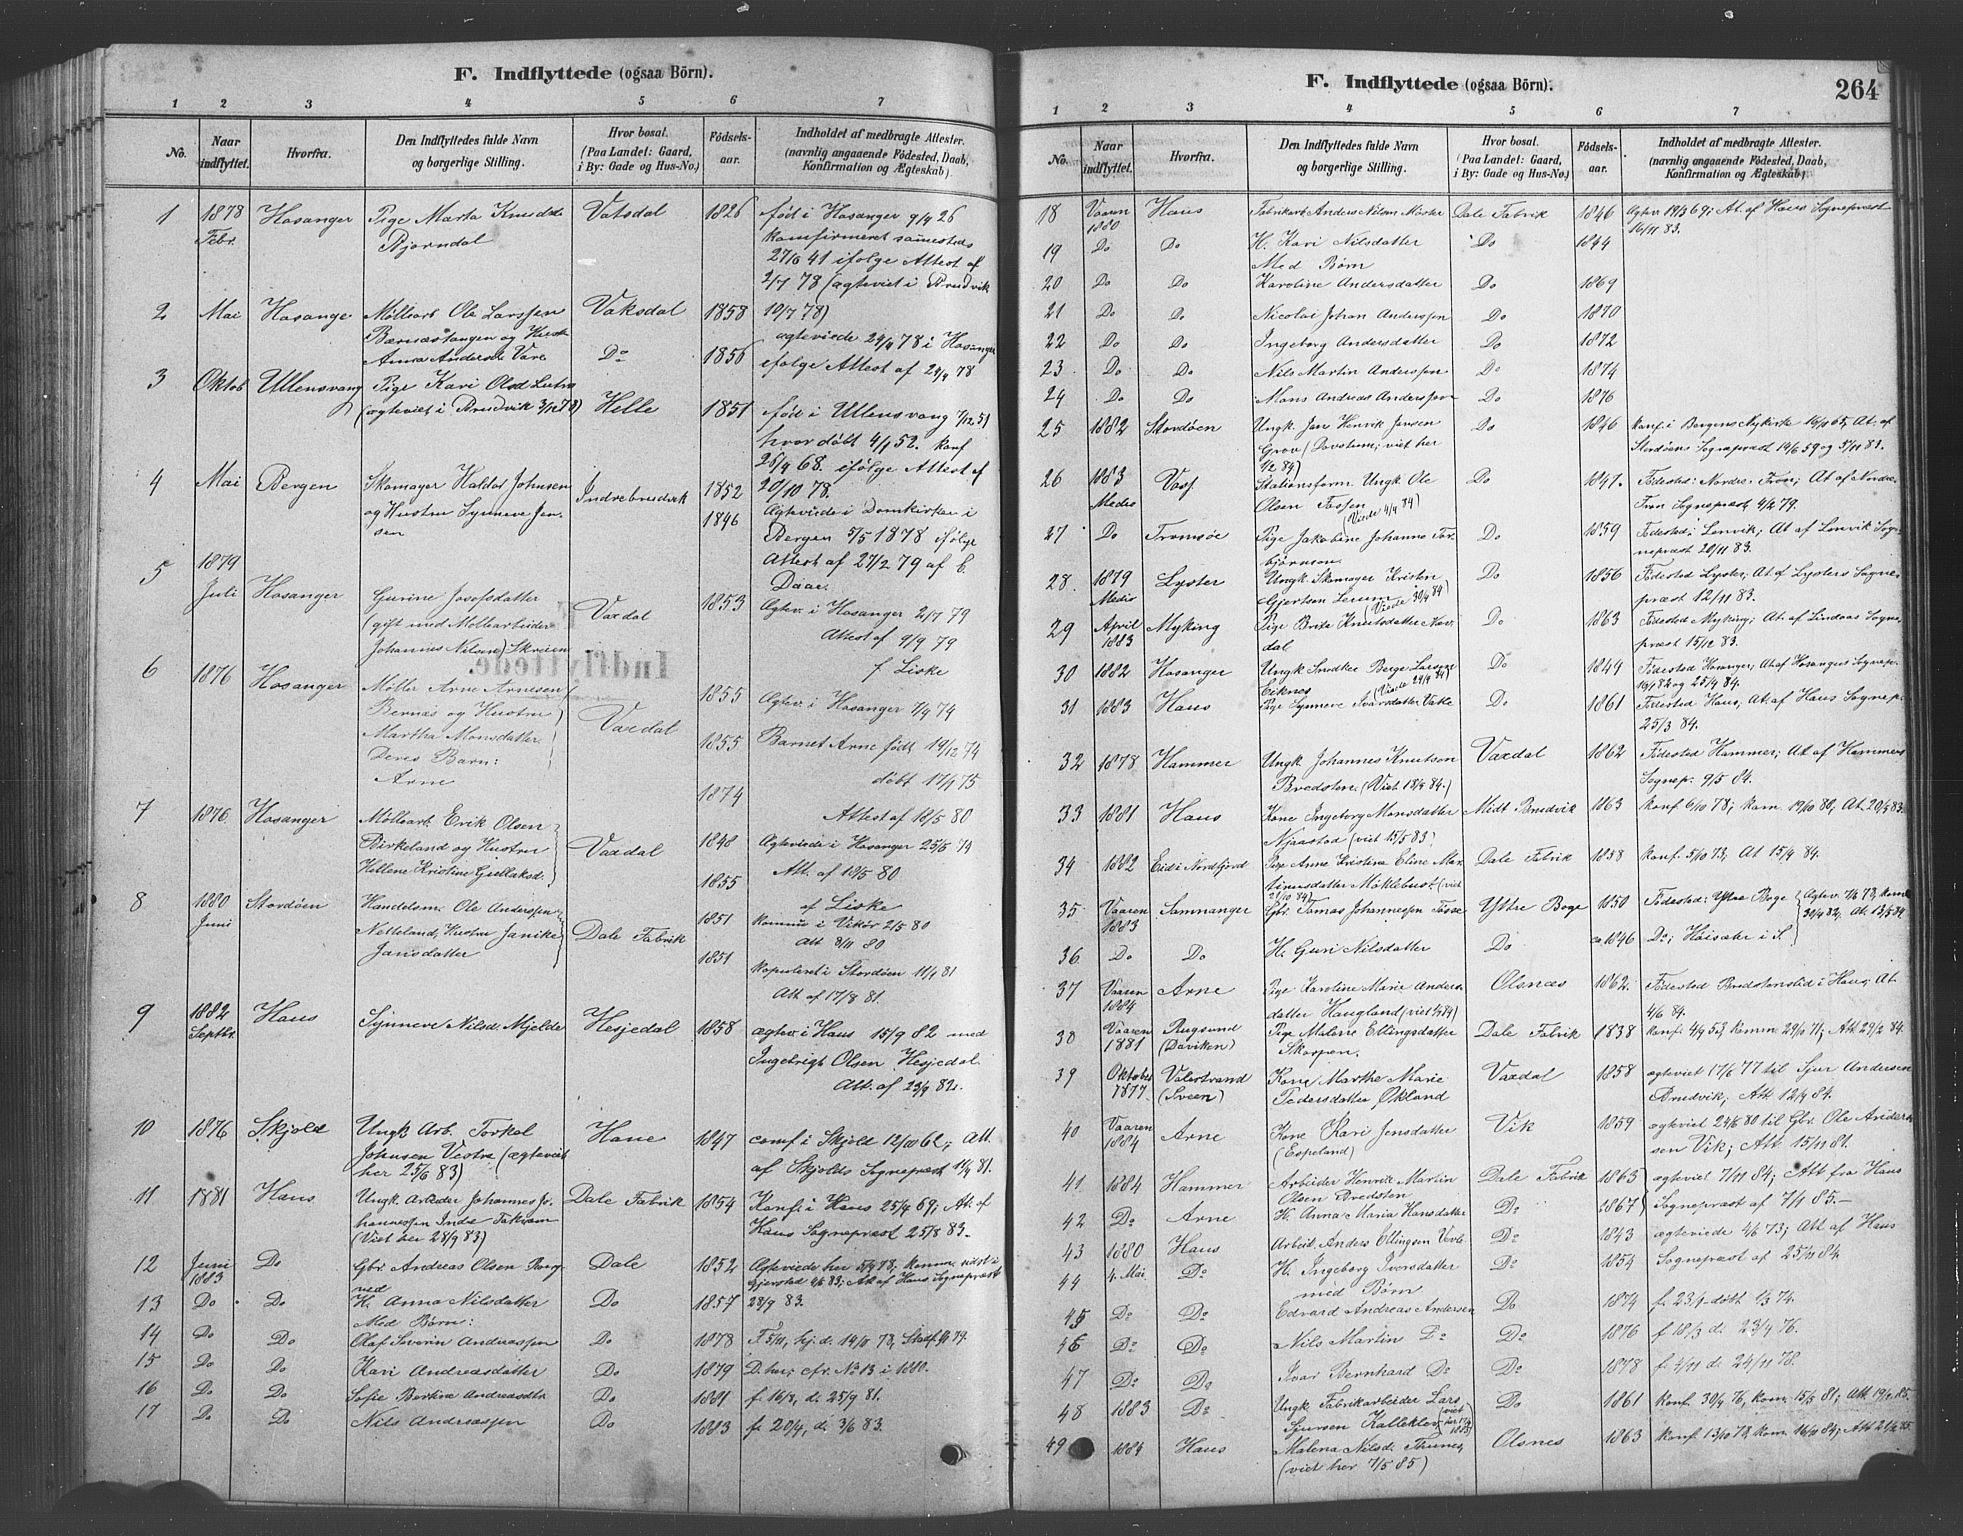 F. Indflyttede (ogsaa Børn).
1 2 3 4 5 6 7
No. Naar indflyttet. Hvorfra. Den Indflyttedes fulde Navn og borgerlige Stilling. Hvor bosat. (Paa Landet: Gaard, i By: Gade og Hus-No.) Fødsels-aar. Indholdet af medbragte Attester. (navnlig angaaende Fødested, Daab, Konfirmation og Ægteskab).
1 1878 Hosanger Pige Marta Knudsd. Vatsdal 1826 fød i Hosanger 9/4 26
Febr. Bjørndal konfirmeret sammesteds
27/6 41 ifølge Attest af
2/7 78 (ægteviet i Brudvik
2 Mai Hosange Møllearb Ole Larssen Vaksdal 1858 10/7 78)
Bærnæstangen og Hustr ægteviede 29/4 78 i Hosanger
Anna Andersd. Vare Do 1856 ifølge Attest af 29/4 78
3 Oktob Ullensvang Pige Kari Olsd
(ægteviet i Bruvik 3/12 78) Helle 1851 fød i Ullensvang 7/12 51
hvor døbt 4/1 52. konf
26/4 68. ifølge Attest af
4 Mai Bergen Skomager Haldor Johnsen Indrebruvik 1852 20/10 78.
og Hustru Synneve Jen- 1846 Ægteviede i Domkirken i
sen Bergen 5/5 1878 ifølge
5 1879 Attest af 27/2 79 af C.
Daae.
Juli Hosanger Gurine Josefsdatter Vaxdal 1853 Ægtev. i Hosanger 2/7 79
(gift med Møllearbeider Attest af 9/9 79
Johannes Nilsen) Skreien f Liske
6 1876 Hosanger Møller Arne Arnesen 1855 Ægtev. i Hosanger 7/4 74
Bernæs og Hustru Vaxdal
Martha Monsdatter. 1855 Barnet Arne født 19/12 74
Deres Barn: døbt 17/1 75
Arne 1874
7 1876 Hosanger Møllearb. Erik Olsen Attest af 18/5 80
Birkeland og Hustru Vaxdal 1848 Ægteviede i Hosanger 25/6 74
Hellene Kristine 1855 Att. af 18/5 80
8 1880 Stordøen Handelsm. Ole Anderssen af Liske
Juni Netteland, Hustru Janike Dale Fabrik 1851 Kommu i Vikør 2/5 80
Jansdatter Att 8/11 80
1851 Kopuleret i Stordøen 11/4 81
Att. af 17/8 81.
9 1882 Haus Synneve Nilsd. Mjelde Hesjedal 1858 ægtev. i Haus 15/9 82 med
Septbr. Ingebrigt Olsen Hesjedal.
Att. af 23/9 82.
10 1876 Skjold Ungk. Arb. Torkel Hane 1847 conf i Skjold 12/10 62; Att.
Johnsen Vestre (ægteviet af Skjolds Sognepræst 11/4 81.
her 25/6 83)
11 1881 Haus Ungk Arbeider Johannes Jo- Dale Fabrik 1854 Konf. i Haus 25/4 69; At. af
hannessen Indre Takvam Haus Sognepræst 25/8 83.
(Viet her 28/9 83)
12 Juni Do Gbr Andreas Olsen Dale 1852 Ægteviede her 78, komm. sidst i
1883 med Gjersted 83; At. af Haus Sognepræst
13 Do Do H. Anna Nilsdatter Do 1857 28/9 83.
Med Børn:
14 Do Do Olaf Severin Andreassen Do 1878 F. 5/11, hj. d. 14/11 78,
15 Do Do Kari Andreasdatter Do 1879 D. her, cfr. No 13 i 1880.
16 Do Do Sofie Bertine Andreasdtr. Do 1881 f. 16/8, d. 25/9 81.
17 Do Do Nils Andreassen Do 1883 f. 20/4, d. 3/6 83.
F. Indflyttede (ogsaa Børn). 264
1 2 3 4 5 6 7
No. Naar indflyttet. Hvorfra. Den Indflyttedes fulde Navn og borgerlige Stilling. Hvor bosat. (Paa Landet: Gaard, i By: Gade og Hus-No.) Fødsels-aar. Indholdet af medbragte Attester. (navnlig angaaende Fødested, Daab, Konfirmation og Ægteskab).
18 Vaaren Haus Fabrikarb. Anders Nilsen Dale Fabrik 1846 Ægtev. 19/3 69; At. af Haus Sognepræst
1880 16/11 83.
19 Do Do H. Kari Nilsdatter Do 1844
Med Børn
20 Do Do Karoline Andersdatter Do 1869
21 Do Do Nicolai Johan Anderssen Do 1870
22 Do Do Ingeborg Andersdatter Do 1872
23 Do Do Nils Martin Anderssen Do 1874
24 Do Do Mons Andreas Anderssen Do 1876
25 1882 Stordøen Ungk. Jan Henrik Jansen Do 1846 Konf. i Bergens Nykirke 65; At. af
Grov (viet her Stordøens Sognepræst 14/6 59 og 5/11 83.
1/2 84)
26 1883 Voss Stationsform. Ungk Ole Do 1847. Fødested: Nordre Fron; At. af Nordre
Medio Olsen Fossen (Viede 4/9 84) Fron Sognepræst 4/2 79.
27 Do Tromsøe Pige Jakobine Johanne Tor- Do 1859 Fødested: Lenvik; At. af Lenvik Sog-
bjørnsen nepræst 20/11 83.
28 1879 Lyster Ungk. Skomager Kristen Do 1856 Fødested Lyster; At. af Lysters Sogne-
Medio Gjertsen Lerum (Viede 30/4 84) præst 12/11 83.
29 April Myking Pige Brita Knutsdatter Nor- Do 1863 Fødested Myking; At. af Lindaas Sogne-
1883 dal præst 15/12 83.
30 1882 Hosanger Ungk Snedker Berge Larsen Do 1849 Fødested Hosanger; At. af Hosanger Sognep.
Eiknes (Viede 29/4 84) 19/1 82 og 25/4 84.
31 1883 Haus Pige Synneve Ivarsdatter Do 1861 Fødested Haus; At. af Haus Sognep.
25/3 84.
32 1878 Hammer Ungk. Johannes Knutson Vaxdal 1862 Fødested Hammer; At. af Hammers
Bredsten (Viet 18/4 84.) Sognep. 9/5 84.
33 1881 Haus Kone Ingeborg Monsdatter Midt Bruvik 1863 Konf. 6/10 78; Kom. 19/10 80, At. 20/4 83.
Njaastad (viet 15/5 83)
34 1882 Eid i Nordfjord Pige Anne Kristine Eline Mar- Dale Fabrik 1858 Konf. 5/10 73; At 15/4 84.
tinusdatter Møklebust (viet 21/10 84)
35 Vaaren Samnanger Gbr. Tomas Johannessen Ystre Boge 1850 Fødested: Ystre Boge Ægtev 7/6 78, kom.
1883 30/4 82; At. 13/5 84.
36 Do Do H. Guri Nilsdatter Do ca 1846 Do; Høisæter i S.
37 Vaaren Arne Pige Karoline Marie Anders- Olsnæs 1862. Fødested Bredstensted i Haus; At.
1884 datter Haugland (viet 84) 4/6 84.
38 Vaaren Rugsund Pige Malene Ellingsdatter Dale Fabrik 1838 Konf. 4/9 53; Komm. 29/6 71; Att 29/2 84.
1881 (Daviken) Skorpen.
39 Oktober Valestrand Kone Marthe Marie Vaxdal 1858 ægteviet 17/6 77 til Sjur Andersen
1877. (Sveen) Pedersdatter Økland Bruvik; Att 12/9 84.
40 Vaaren Arne Kone Kari Jensdatter Vik 1859 ægteviet 24/6 80 til Gbr. Ole Anders-
1884 (Espeland) sen Vik; Att 15/11 81.
41 1884 Hammer Arbeider Henrik Martin Dale Fabrik 1863 ægteviet 7/11 84; Att fra Haus
Olsen Bredsten
42 Do Arne H. Anna Maria Hansdatter Do 1867 Sognepræst af 7/1 85.
43 1880 Haus Arbeid. Anders Ellingsen Do 1843 ægteviede 4/6 73; At. af Haus
44 4. Mai Do H. Ingeborg Iversdatter Do 1854 Sognepræst af 25/11 84.
med Børn
45 Do Do Edvard Andreas Andersen Do 1874 f. 23/1 døbt 1/3 74.
46 Do Do Nils Martin Do Do 1876 f 18/3 d. 23/4 76.
47 Do Do Ivar Bernhard Do Do 1878 f. 4/11 d. 24/11 78.
48 1883 Do Ungk Fabrikarbeider Lars Do 1861 Konf. 30/4 76, kom. 15/5 81; Att. 19/2 85.
Sjursen Kalleklev (viet her 1885)
49 1884 Haus Malena Nilsd. Olsnes 1863 Konf 13/10 78, kom 16/11 84; Att 21/2 85.
(viet her 7/5 85)